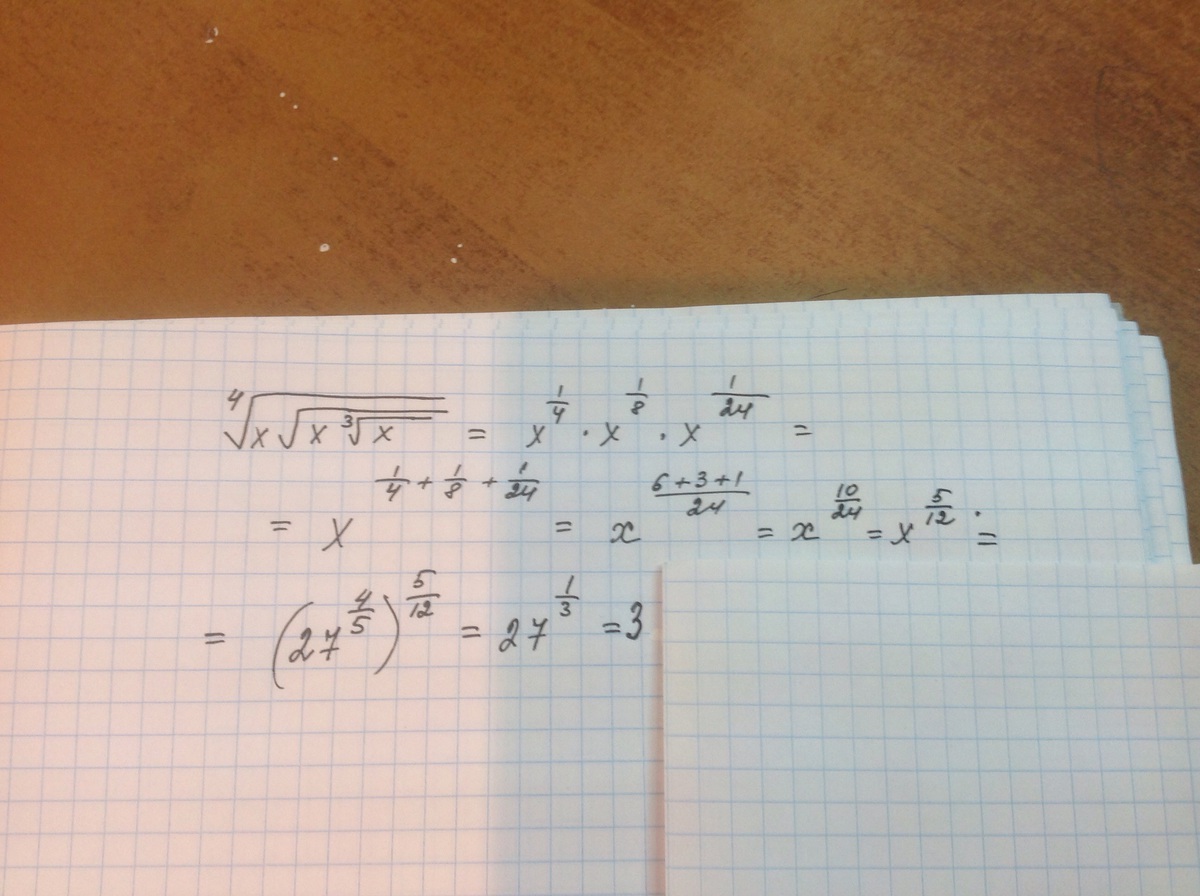 ⁴√(x√(x ³√x)) = x^(1/4) · x^(1/8) · x^(1/24) =
= x^(1/4 + 1/8 + 1/24) = x^((6+3+1)/24) = x^(10/24) = x^(5/12) =
= (27^(4/5))^(5/12) = 27^(1/3) = 3